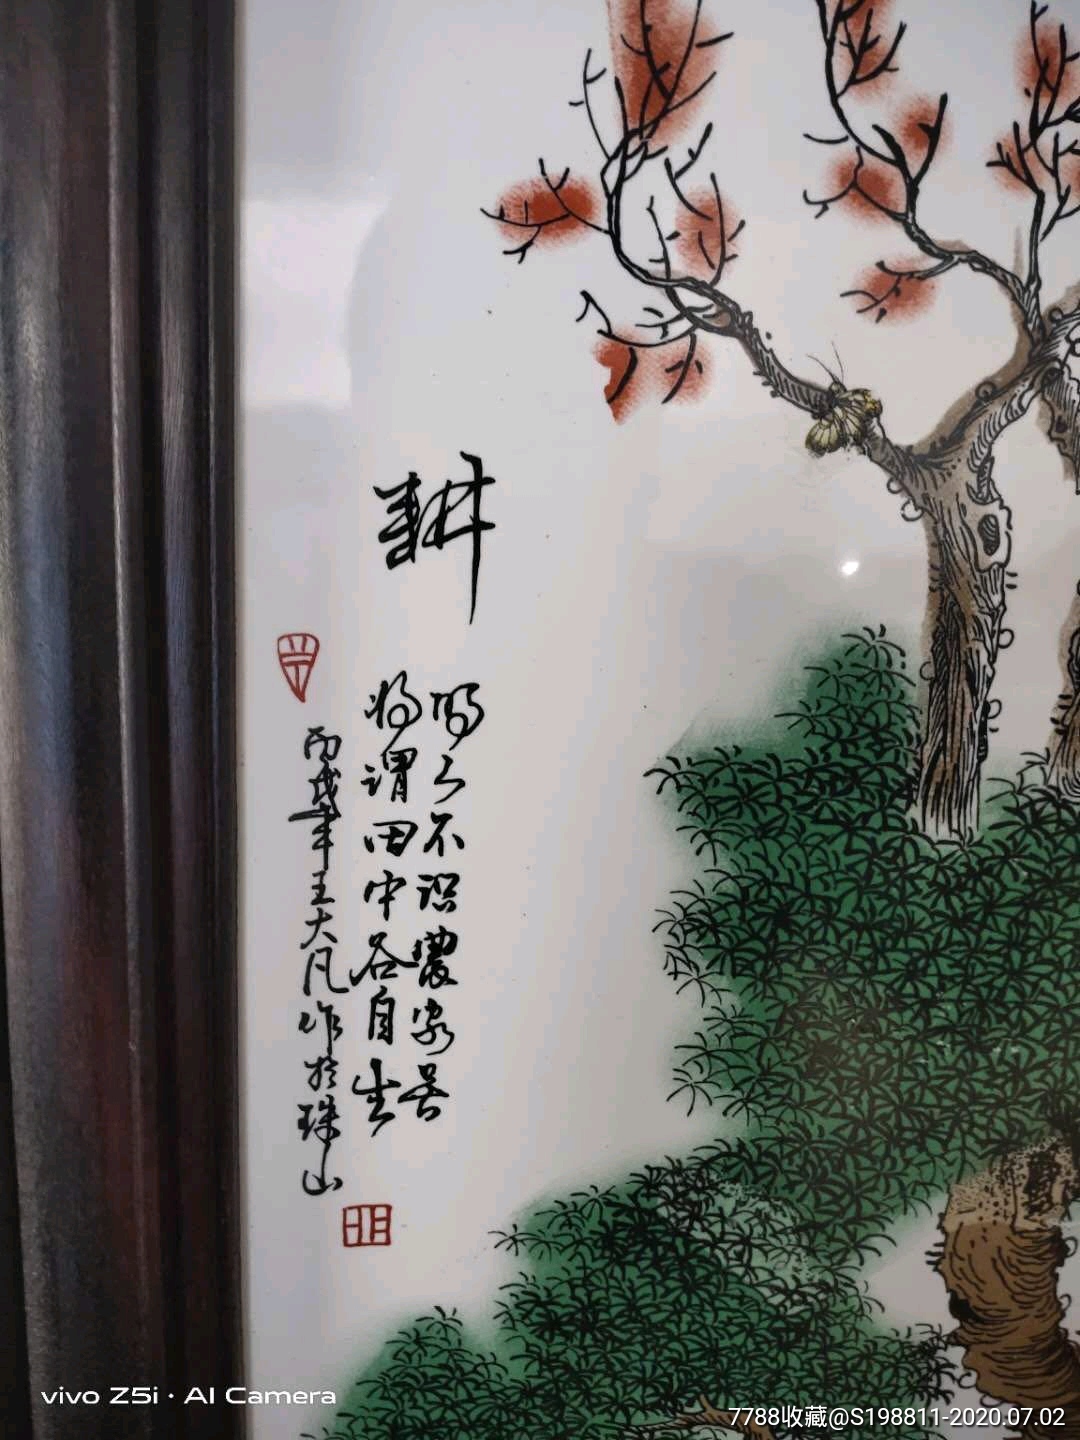 耕
時人不识農家苦
将谓田中谷自生
丙戌年王大凡作于珠山
vivo Z5i · AI Camera
7788收藏@S198811-2020.07.02